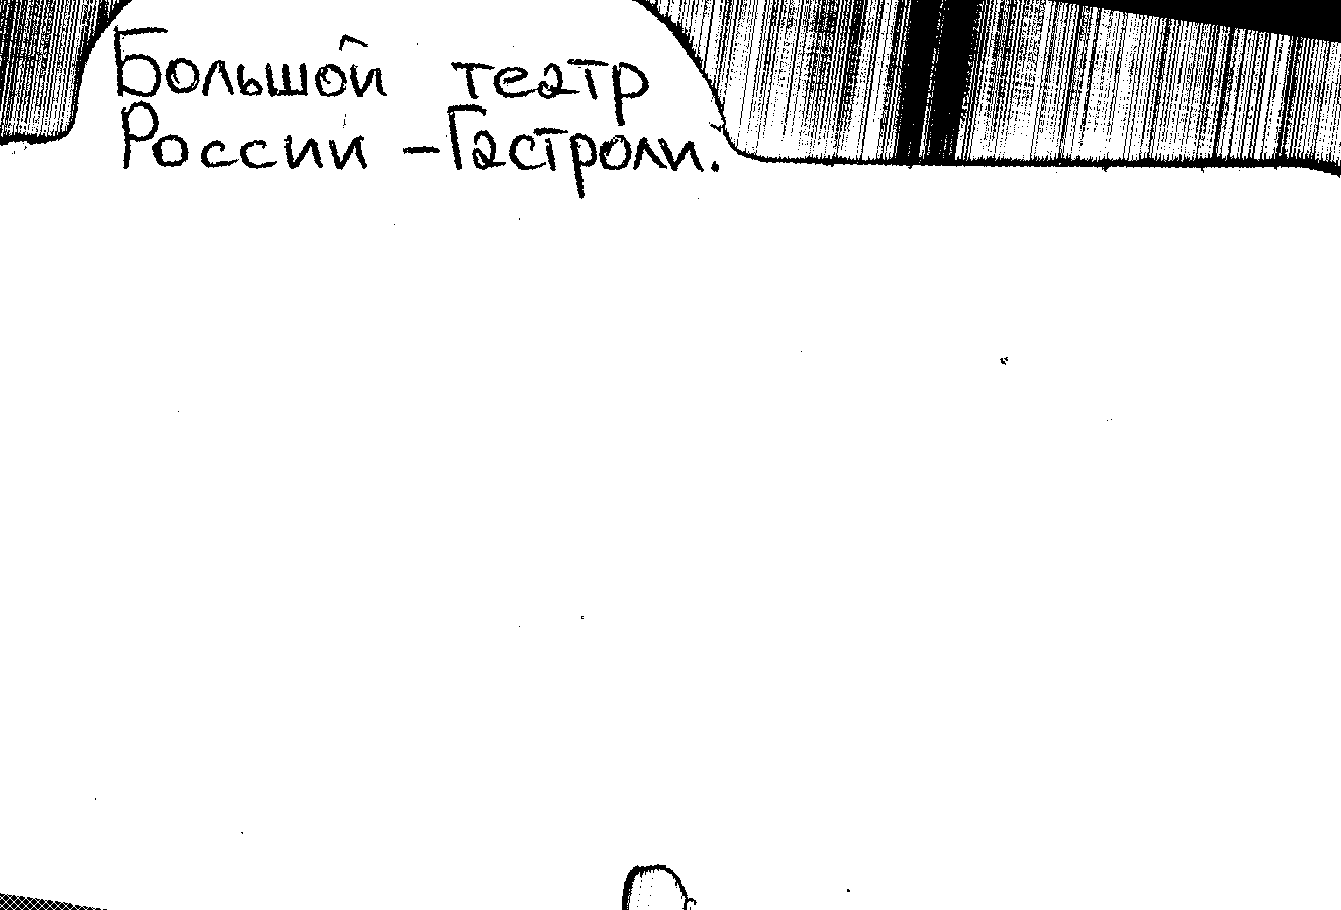 Большой театр
России - Гастроли.